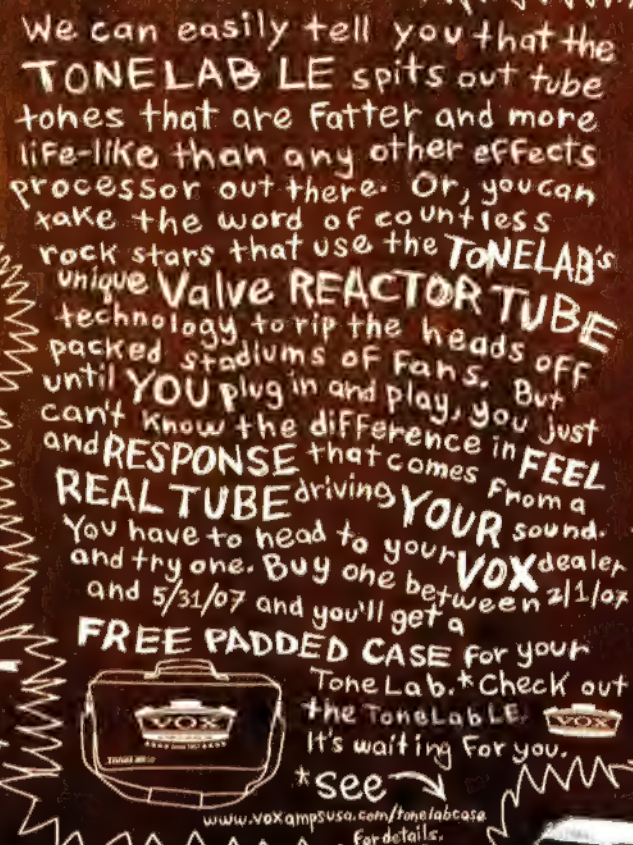 We can easily tell you that the
TONELAB LE spits out tube
tones that are Fatter and more
life-like than any other effects
processor out there. Or, you can
take the word of countless
rock stars that use the TONELAB's
unique Valve REACTOR TUBE
technology to rip the heads off
packed stadiums of fans. But
until YOU plug in and play, you just
can't know the difference in FEEL
and RESPONSE that comes from a
REAL TUBE driving YOUR sound.
You have to head to your VOX dealer
and try one. Buy one between 2/1/07
and 5/31/07 and you'll get a
FREE PADDED CASE for your
Tone Lab.* Check out
the ToneLab LE.
It's waiting For you.
VOX
VOX
*see
www.voxampsusa.com/tonelabcase
For details.